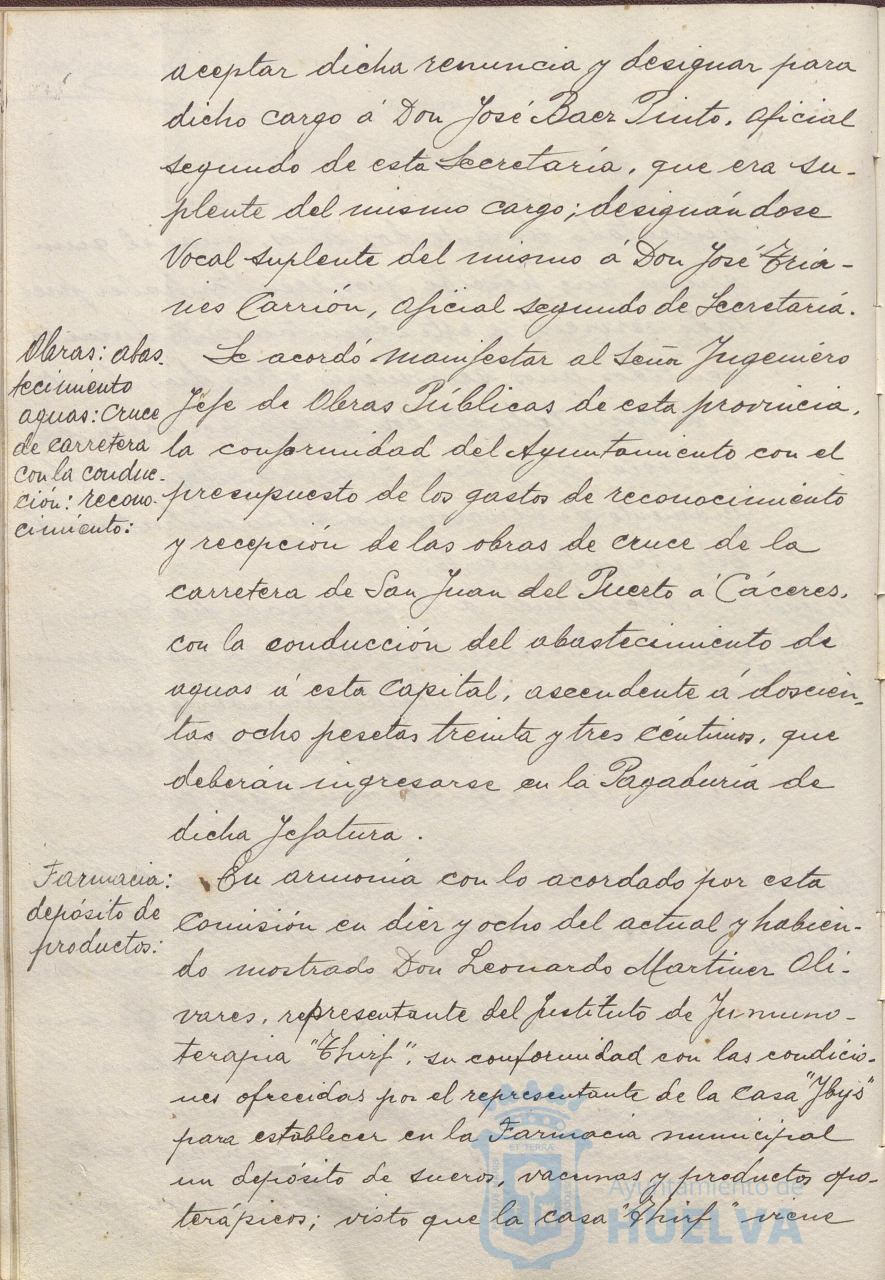 aceptar dicha renuncia y designar para
dicho cargo á Don José Baez Pinto, oficial
segundo de esta Secretaría, que era su-
plente del mismo cargo; designándose
Vocal suplente del mismo á Don José Tria-
nes Carrión, oficial segundo de Secretaría.
Obras: abas-
tecimiento
aguas: cruce
de carretera
con la conduc-
ción: recono-
cimiento:
Se acordó manifestar al Señor Ingeniero
Jefe de Obras Públicas de esta provincia,
la conformidad del Ayuntamiento con el
presupuesto de los gastos de reconocimiento
y recepción de las obras de cruce de la
carretera de San Juan del Puerto á Cáceres,
con la conducción del abastecimiento de
aguas á esta Capital, ascendente á doscien-
tas ocho pesetas treinta y tres céntimos, que
deberán ingresarse en la Pagaduría de
dicha Jefatura.
Farmacia:
depósito de
productos:
En armonía con lo acordado por esta
Comisión en diez y ocho del actual y habien-
do mostrado Don Leonardo Martinez Oli-
vares, representante del Instituto de Inmuno-
terapia "Thirf", su conformidad con las condicio-
nes ofrecidas por el representante de la casa "Ibys"
para establecer en la Farmacia municipal
un depósito de sueros, vacunas y productos opo-
terápicos; visto que la casa "Thirf" viene
Ayuntamiento de
HUELVA